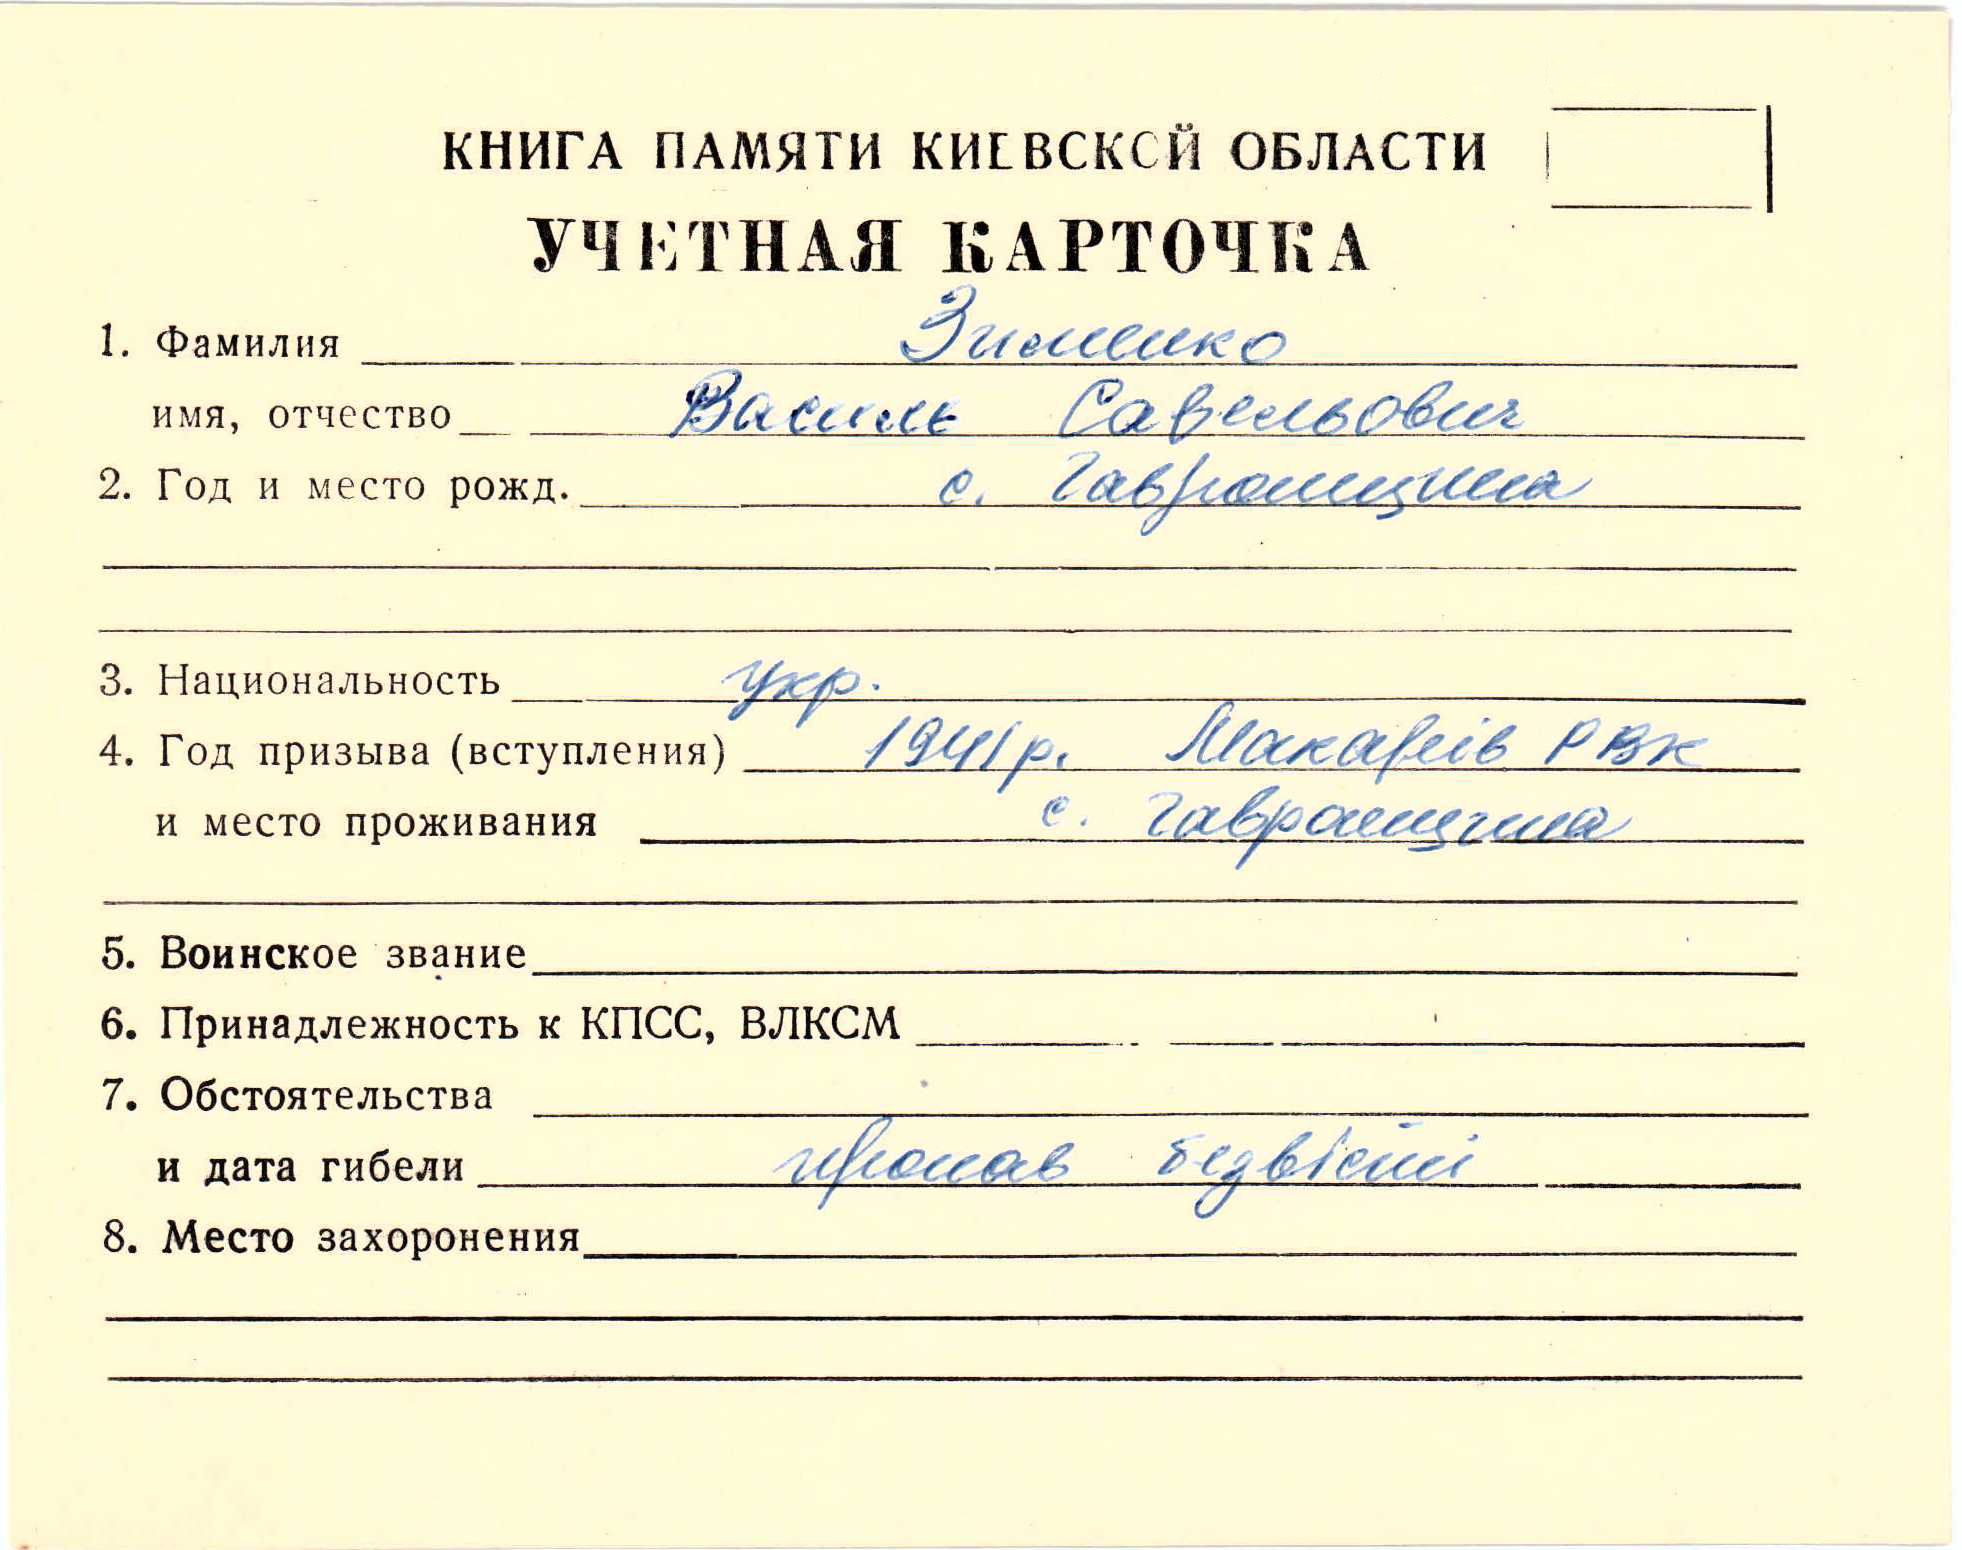 КНИГА ПАМЯТИ КИЕВСКОЙ ОБЛАСТИ
УЧЕТНАЯ КАРТОЧКА
1. Фамилия Зименко
имя, отчество Василь Савельович
2. Год и место рожд. с. Гавронщина
3. Национальность укр.
4. Год призыва (вступления) 1941 р. Макарів РВК
и место проживания с. Гавронщина
5. Воинское звание
6. Принадлежность к КПСС, ВЛКСМ
7. Обстоятельства
и дата гибели пропав безвісті
8. Место захоронения